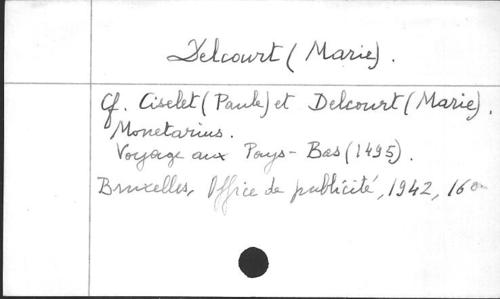 Delcourt (Marie).
Cf. Ciselet (Paule) et Delcourt (Marie).
Monetarius.
Voyage aux Pays-Bas (1495).
Bruxelles, Office de publicité, 1942, 16°